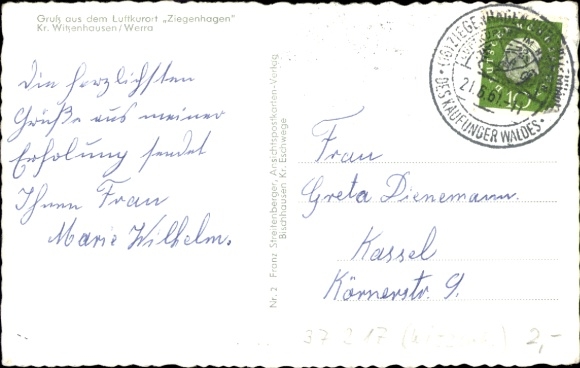 Gruß aus dem Luftkurort „Ziegenhagen"
Kr. Witzenhausen/Werra
Die herzlichsten
Grüße aus meiner
Erholung sendet
Ihnen Frau
Marie Wilhelm.
Nr. 2 Franz Streitenberger, Ansichtspostkarten-Verlag
Bischhausen Kr. Eschwege
21.6.61
DES KAUFUNGER WALDES
Frau
Greta Dienemann.
Kassel
Körnerstr. 9.
37 217
2,-